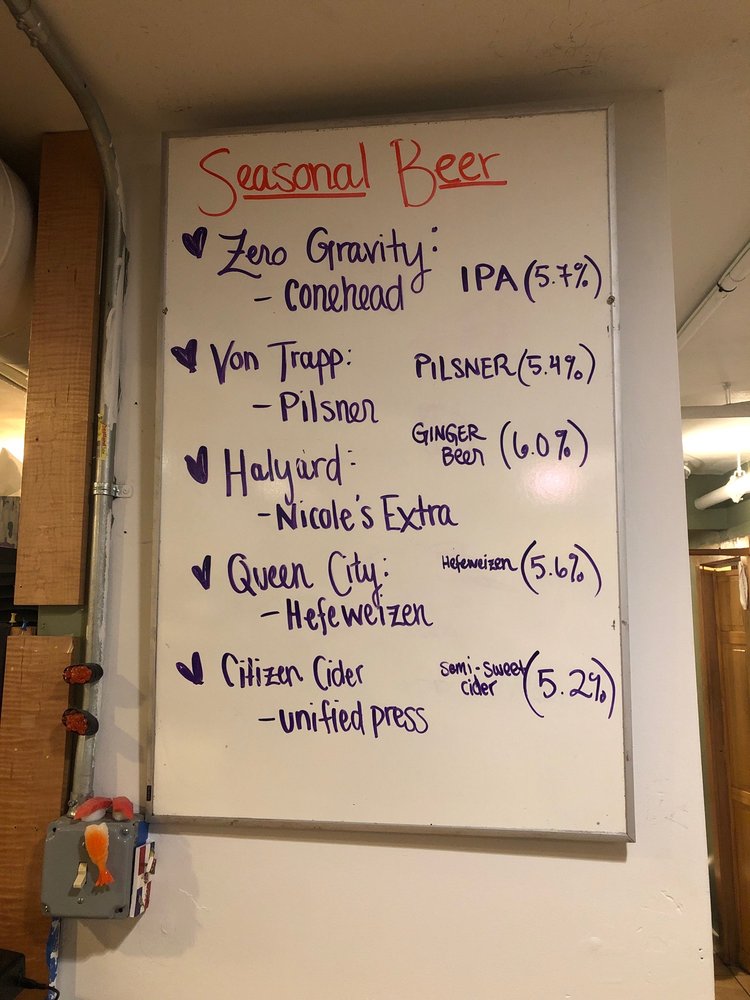 Seasonal Beer
Zero Gravity:
- Conehead IPA (5.7%)
Von Trapp: PILSNER (5.4%)
- Pilsner
Halyard: GINGER Beer (6.0%)
- Nicole's Extra
Queen City: Hefeweizen (5.6%)
- Hefeweizen
Citizen Cider semi-sweet cider (5.2%)
- unified press